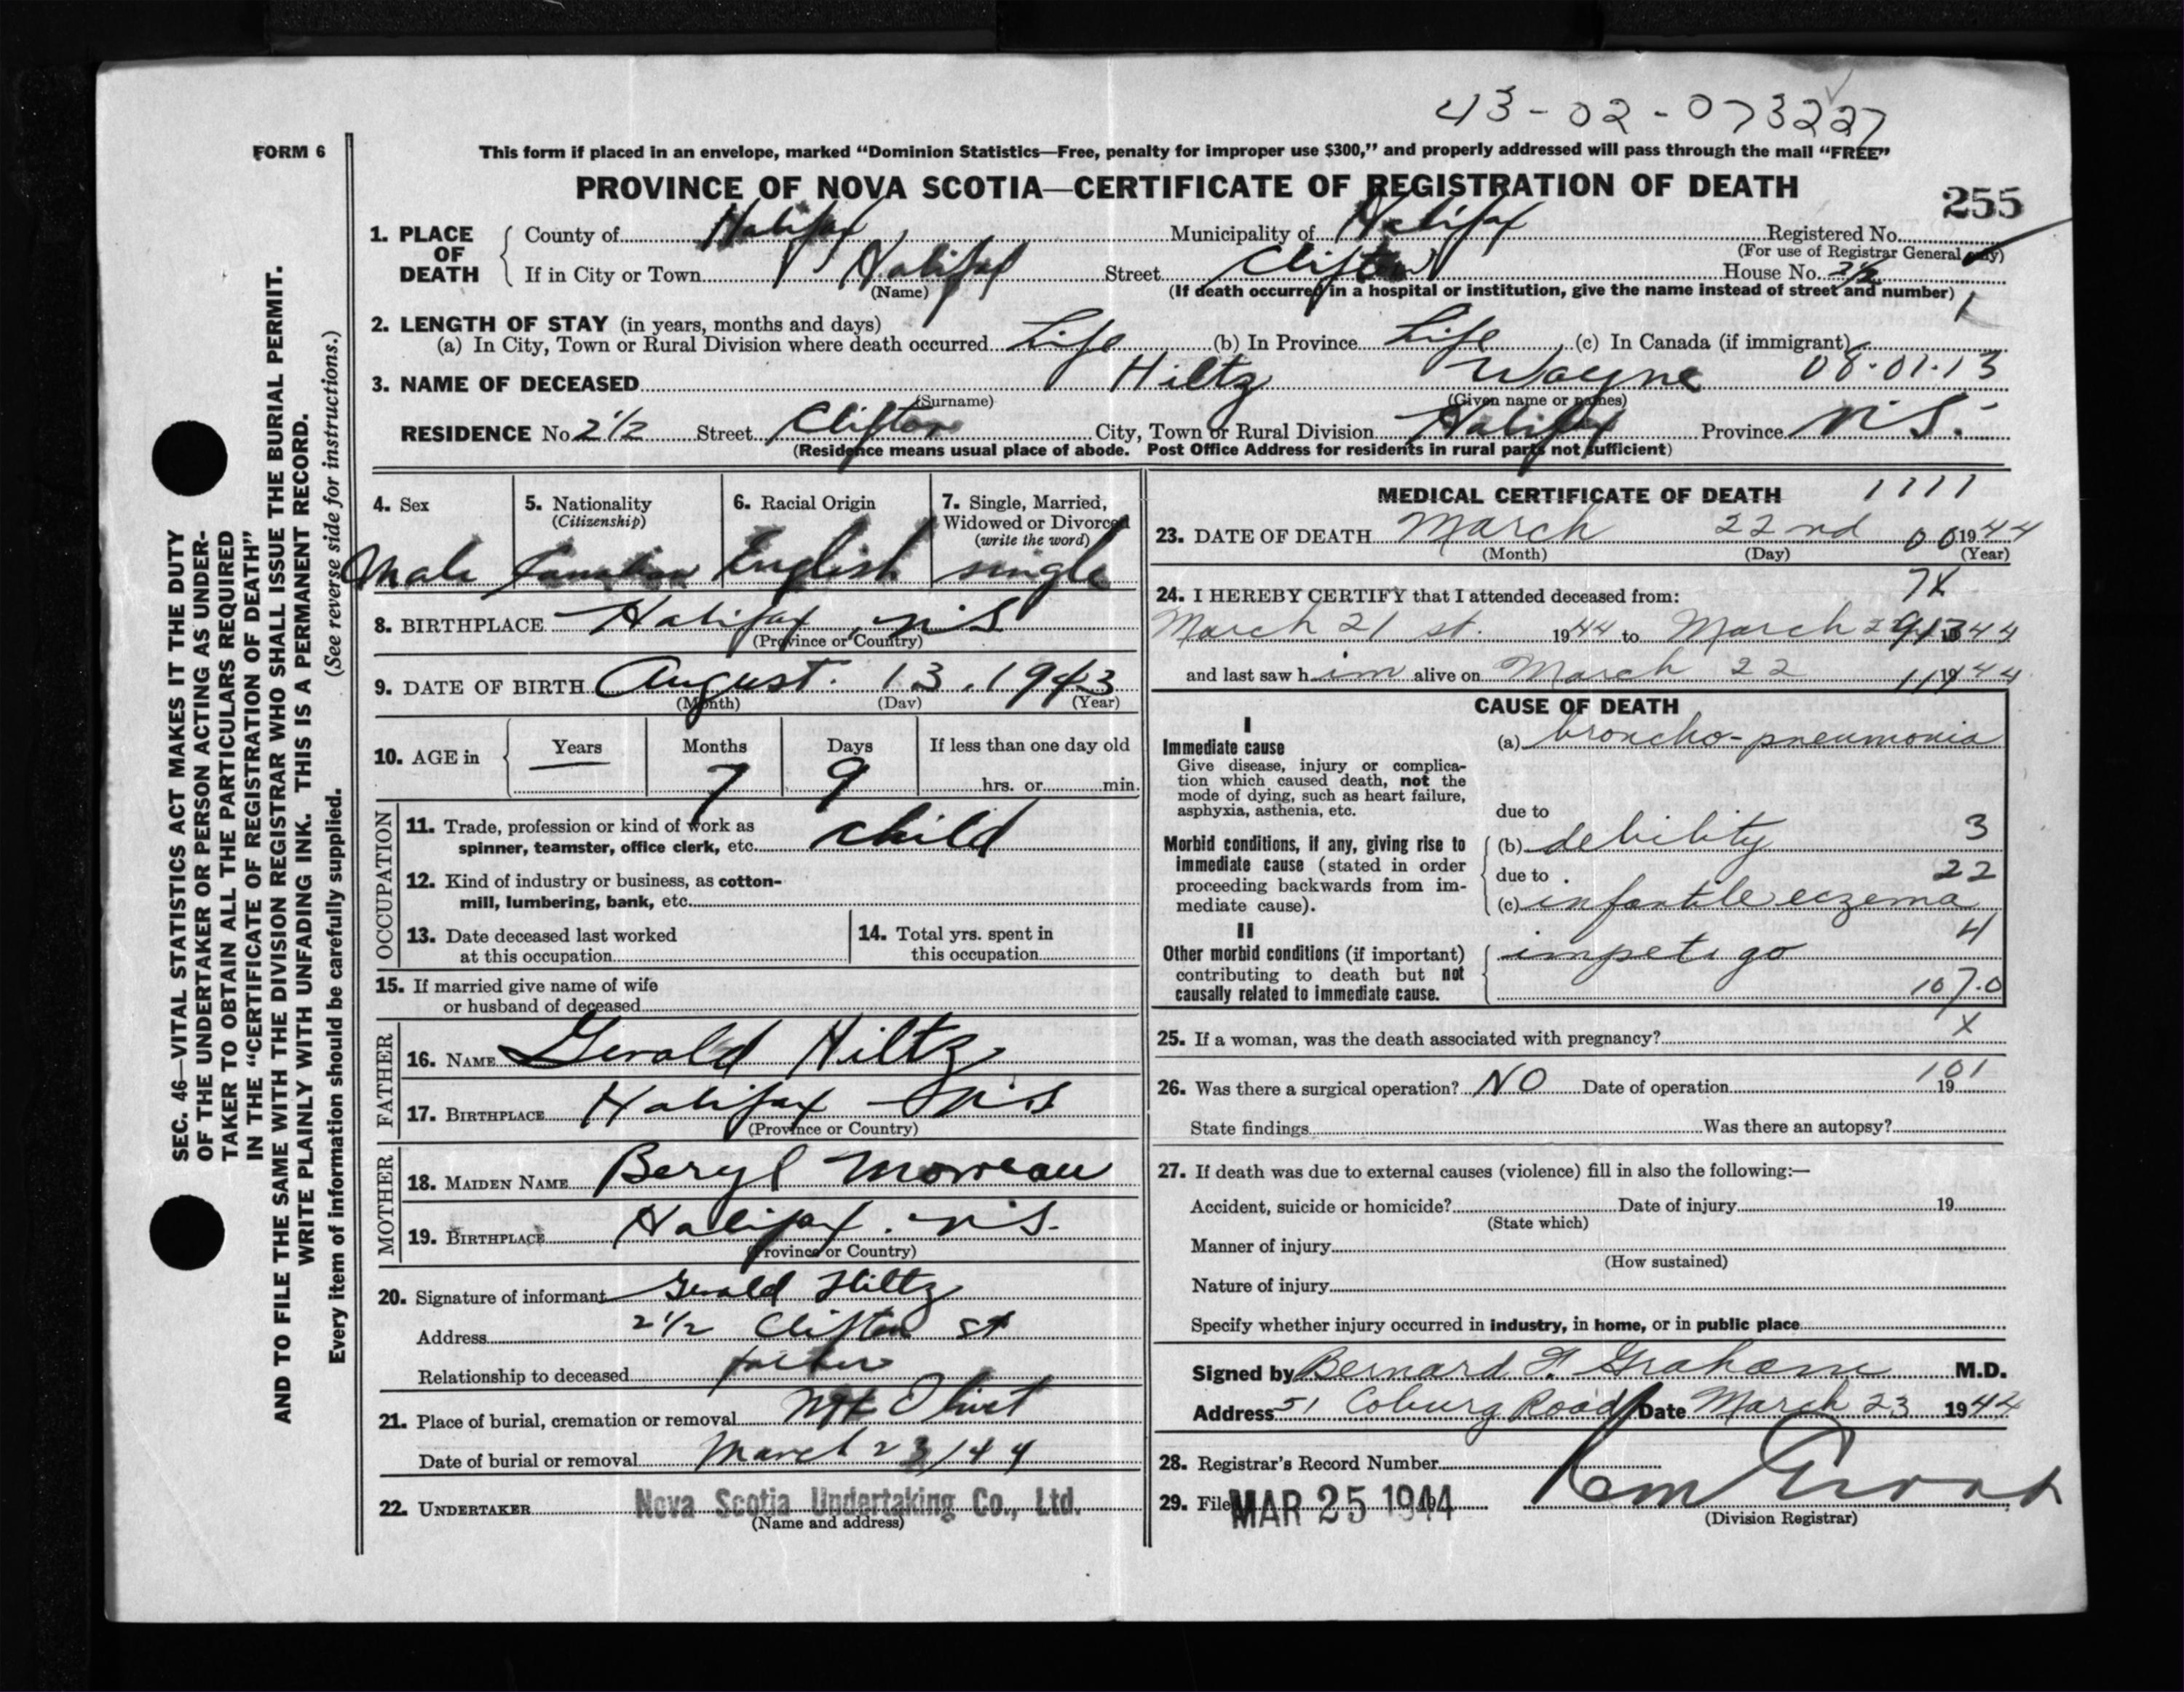 43-02-073227
FORM 6
This form if placed in an envelope, marked “Dominion Statistics—Free, penalty for improper use $300,” and properly addressed will pass through the mail “FREE”
PROVINCE OF NOVA SCOTIA—CERTIFICATE OF REGISTRATION OF DEATH
255
1. PLACE OF DEATH
County of Halifax Municipality of Halifax Registered No.
(For use of Registrar General only)
If in City or Town Halifax Street Clifton House No. 2 1/2
(Name) (If death occurred in a hospital or institution, give the name instead of street and number)
2. LENGTH OF STAY (in years, months and days)
(a) In City, Town or Rural Division where death occurred Life (b) In Province Life (c) In Canada (if immigrant)
3. NAME OF DECEASED Hiltz Wayne 08-01-13
(Surname) (Given name or names)
RESIDENCE No 2 1/2 Street Clifton City, Town or Rural Division Halifax Province N.S.
(Residence means usual place of abode. Post Office Address for residents in rural parts not sufficient)
4. Sex
Male
5. Nationality
(Citizenship)
Canadian
6. Racial Origin
English
7. Single, Married,
Widowed or Divorced
(write the word)
single
8. BIRTHPLACE Halifax, N.S
(Province or Country)
9. DATE OF BIRTH August. 13, 1943
(Month) (Day) (Year)
10. AGE in
Years Months Days If less than one day old
7 9 hrs. or min.
OCCUPATION
11. Trade, profession or kind of work as
spinner, teamster, office clerk, etc. child
12. Kind of industry or business, as cotton-
mill, lumbering, bank, etc.
13. Date deceased last worked
at this occupation
14. Total yrs. spent in
this occupation
15. If married give name of wife
or husband of deceased
FATHER
16. NAME Gerald Hiltz
17. BIRTHPLACE Halifax N.S
(Province or Country)
MOTHER
18. MAIDEN NAME Beryl Moreau
19. BIRTHPLACE Halifax. N.S.
(Province or Country)
20. Signature of informant Gerald Hiltz
Address 2 1/2 Clifton St
Relationship to deceased father
21. Place of burial, cremation or removal Mt Olivet
Date of burial or removal March 23/44
22. UNDERTAKER Nova Scotia Undertaking Co., Ltd.
(Name and address)
MEDICAL CERTIFICATE OF DEATH 1111
23. DATE OF DEATH March 22nd 1944
(Month) (Day) (Year)
24. I HEREBY CERTIFY that I attended deceased from: 7X
March 21 st. 1944 to March 1944
and last saw him alive on March 22 1944
CAUSE OF DEATH
I
Immediate cause
Give disease, injury or complica-
tion which caused death, not the
mode of dying, such as heart failure,
asphyxia, asthenia, etc.
(a) broncho-pneumonia
due to
Morbid conditions, if any, giving rise to
immediate cause (stated in order
proceeding backwards from im-
mediate cause).
(b) debility 3
due to 22
(c) infantile eczema
II
Other morbid conditions (if important)
contributing to death but not
causally related to immediate cause.
4
impetigo
107.0
25. If a woman, was the death associated with pregnancy? X
26. Was there a surgical operation? NO Date of operation 19 101
State findings Was there an autopsy?
27. If death was due to external causes (violence) fill in also the following:—
Accident, suicide or homicide? Date of injury 19
(State which)
Manner of injury
(How sustained)
Nature of injury
Specify whether injury occurred in industry, in home, or in public place
Signed by Bernard F. Graham M.D.
Address 51 Coburg Road Date March 23 1944
28. Registrar's Record Number
29. File MAR 25 1944
(Division Registrar)
SEC. 46—VITAL STATISTICS ACT MAKES IT THE DUTY
OF THE UNDERTAKER OR PERSON ACTING AS UNDER-
TAKER TO OBTAIN ALL THE PARTICULARS REQUIRED
IN THE “CERTIFICATE OF REGISTRATION OF DEATH”
AND TO FILE THE SAME WITH THE DIVISION REGISTRAR WHO SHALL ISSUE THE BURIAL PERMIT.
WRITE PLAINLY WITH UNFADING INK. THIS IS A PERMANENT RECORD.
Every item of information should be carefully supplied. (See reverse side for instructions.)